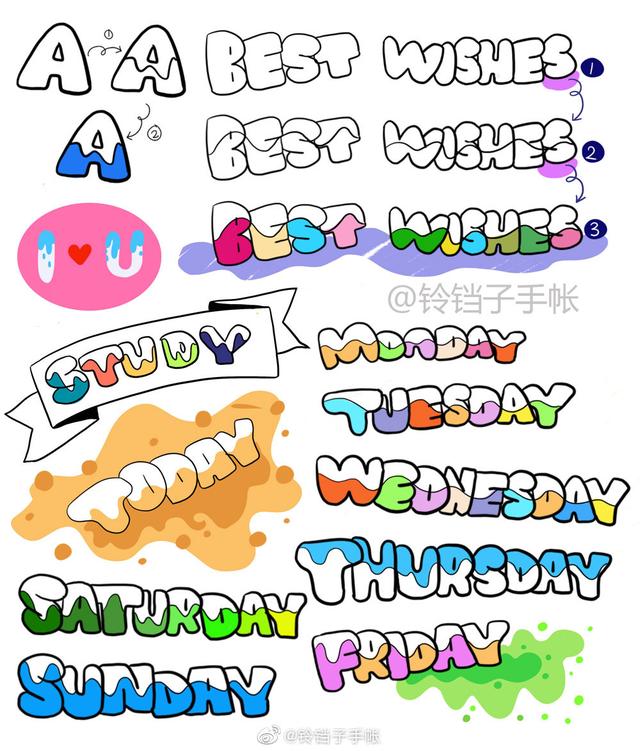 A A
①
A
②
BEST WISHES 1
BEST WISHES 2
BEST WISHES 3
I ♥ U
@铃铛子手帐
STUDY
TODAY
MONDAY
TUESDAY
WEDNESDAY
THURSDAY
FRIDAY
SATURDAY
SUNDAY
@铃铛子手帐